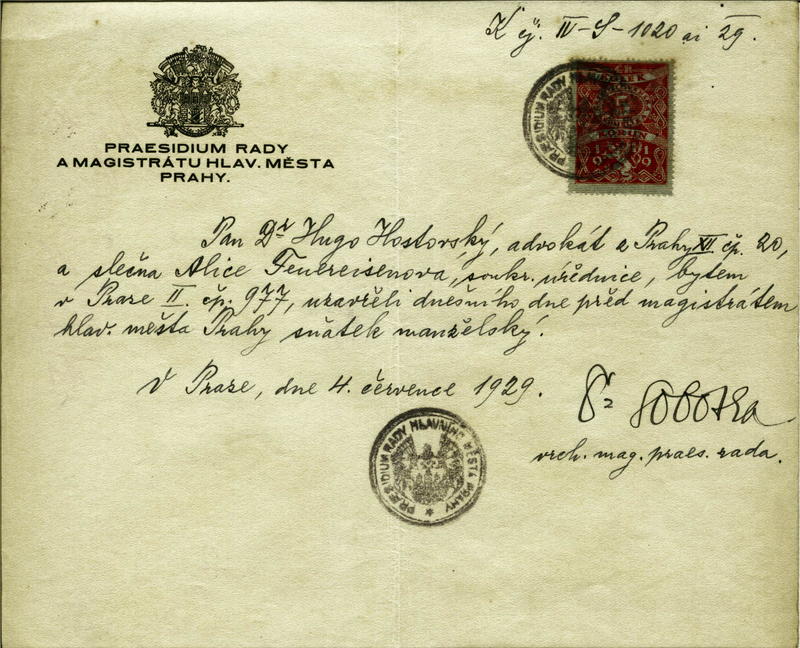 K čj. IV-S-1020 ai 29.
PRAESIDIUM RADY
A MAGISTRÁTU HLAV. MĚSTA
PRAHY.
PRAESIDIUM RADY HLAVNÍHO
KOLEK
1919
Pan Dr Hugo Hostovský, advokát z Prahy XII čp. 20,
a slečna Alice Feuereisenová, soukr. úřednice, bytem
v Praze II. čp. 977, uzavřeli dnešního dne před magistrátem
hlav. města Prahy sňatek manželský.
V Praze, dne 4. července 1929.
Dr Sobotka
vrch. mag. praes. rada.
PRAESIDIUM RADY HLAVNÍHO MĚSTA PRAHY